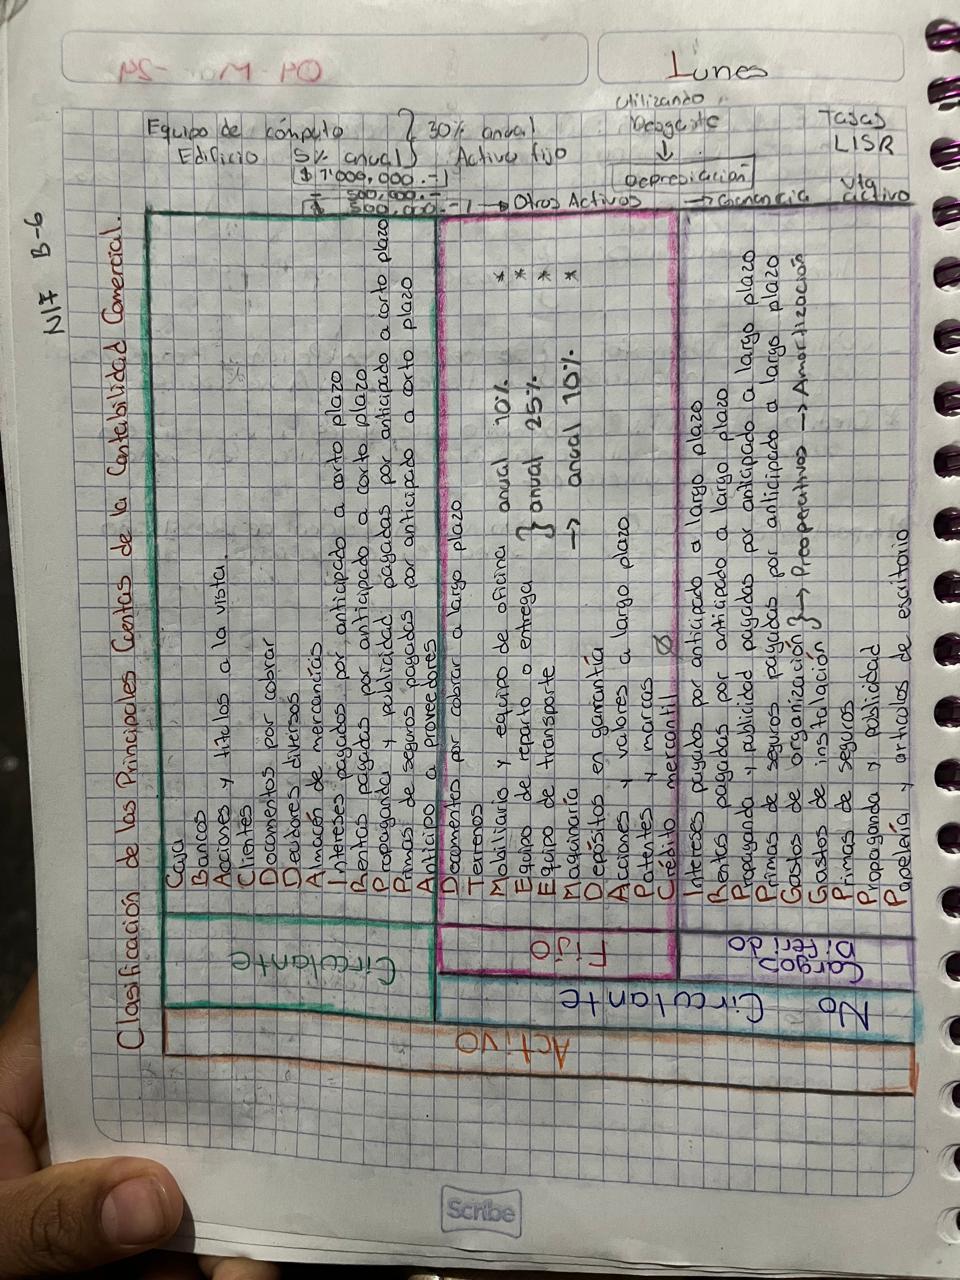 NIF B-6
Clasificación de las Principales Cuentas de la Contabilidad Comercial.
Activo
Circulante
Caja
Bancos
Acciones y titulos a la vista.
Clientes
Documentos por cobrar
Deudores diversos
Almacén de mercancías
Intereses pagados por anticipado a corto plazo
Rentas pagadas por anticipado a corto plazo
Propaganda y publicidad pagadas por anticipado a corto plazo
Primas de seguros pagadas por anticipado a corto plazo
Anticipo a proveedores
No Circulante
Fijo
Documentos por cobrar a largo plazo
Terrenos
Mobiliario y equipo de oficina anual 10% *
Equipo de reparto o entrega } anual 25% *
Equipo de transporte *
Maquinaría → anual 10% *
Depósitos en garantía
Acciones y valores a largo plazo
Patentes y marcas
Crédito mercantil Ø
Cargos Diferido
Intereses pagados por anticipado a largo plazo
Rentas pagadas por anticipado a largo plazo
Propaganda y publicidad pagadas por anticipado a largo plazo
Primas de seguros pagadas por anticipado a largo plazo
Gastos de organización } → Preoperativos → Amortización
Gastos de instalación
Primas de seguros
Propaganda y publicidad
Papelería y artículos de escritorio
Equipo de cómputo } 30% anual
Edificio 5% anual } Activo fijo
Depreciación
→ Otros Activos →
Utilizando
Tasas
LISR
Vta activo
Lunes
Scribe